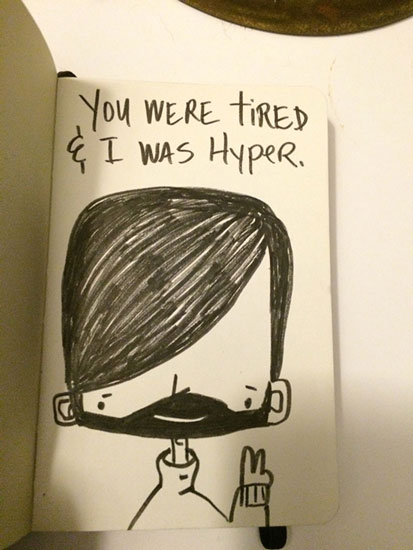 You WERE tiRED
& I WAS HypeR.